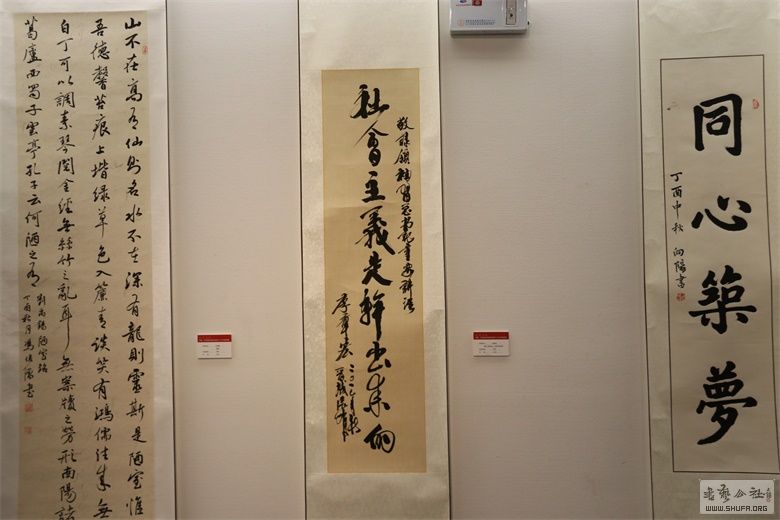 山不在高有仙則名水不在深有龍則靈斯是陋室惟
吾德馨苔痕上堦緑草色入簾青談笑有鴻儒往來無
白丁可以調素琴閱金經無絲竹之亂耳無案牘之勞形南陽諸
葛廬西蜀子雲亭孔子云何陋之有
劉禹錫陋室銘
丁酉秋月馮 書
敬錄領袖習總書記重要講話
社會主義是幹出來的
同心築夢
丁酉中秋 向陽書
書藝公社
WWW.SHUFA.ORG